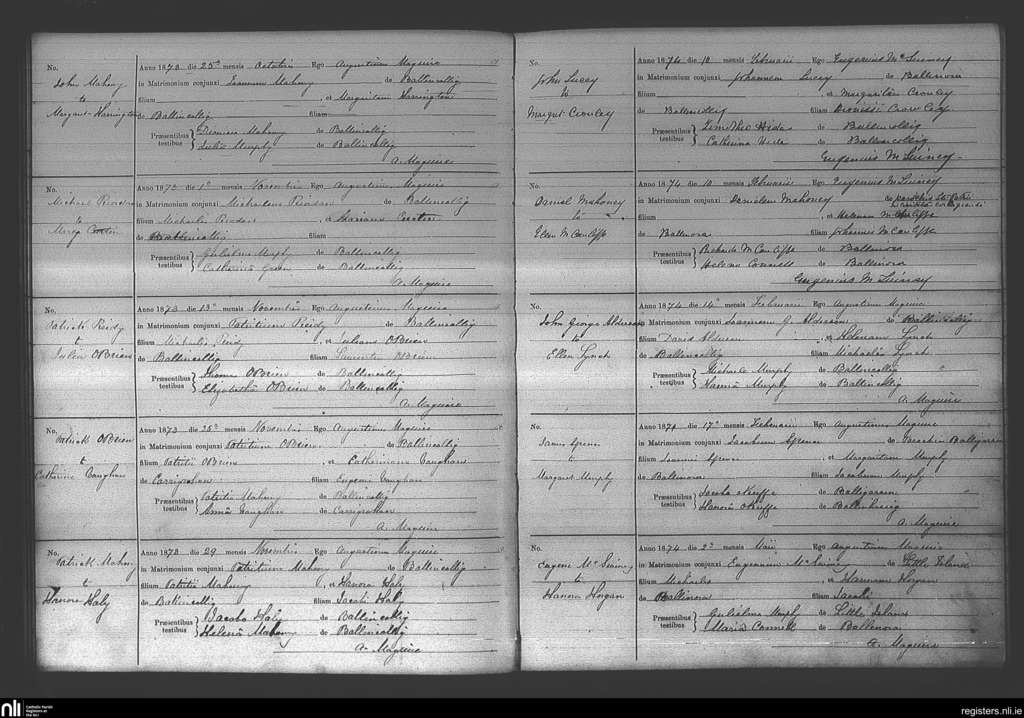 No.
John Mahony
to
Margaret Harrington
Anno 1873 die 25º mensis Octobris Ego Augustinus Maguire
in Matrimonium conjunxi Joannem Mahony de Ballincollig
filium , et Margaritam Harrington
de Ballincollig filiam
Præsentibus testibus Mahony de Ballincollig
Julia Murphy de Ballincollig
A. Maguire
No.
Michael Riordan
to
Mary
Anno 1873 die 1º mensis Novembris Ego Augustinus Maguire
in Matrimonium conjunxi Michaelem Riordan de Ballincollig
filium Michaelis Riordan , et Mariam
de Ballincollig filiam
Præsentibus testibus Gulielmo Murphy de Ballincollig
Catherina de Ballincollig
A. Maguire
No.
Patrick Reidy
to
Julia OBrien
Anno 1873 die 13º mensis Novembris Ego Augustinus Maguire
in Matrimonium conjunxi Patritium Reidy de Ballincollig
filium Michaelis Reidy , et Julianam OBrien
de Ballincollig filiam OBrien
Præsentibus testibus Thoma OBrien de Ballincollig
Elizabetha OBrien de Ballincollig
A. Maguire
No.
Patrick OBrien
to
Catherine Vaughan
Anno 1873 die 25º mensis Novembris Ego Augustinus Maguire
in Matrimonium conjunxi Patritium OBrien de Ballincollig
filium Patritii OBrien , et Catherinam Vaughan
de Carrigrohan filiam Eugene Vaughan
Præsentibus testibus Patritio Mahony de Ballincollig
Anna Vaughan de Carrigrohan
A. Maguire
No.
Patrick Mahony
to
Hanora Haly
Anno 1873 die 29 mensis Novembris Ego Augustinus Maguire
in Matrimonium conjunxi Patritium Mahony de Ballincollig
filium Patritii Mahony , et Hanora Haly
de Ballincollig filiam Jacobi Haly
Præsentibus testibus Jacobo Haly de Ballincollig
Helena Mahony de Ballincollig
A. Maguire
No.
John Lucey
to
Margret Crowley
Anno 1874 die 10 mensis Februarii Ego Eugenius McSwiney
in Matrimonium conjunxi Johannem Lucey de Ballinora
filium , et Margaritam Crowley
de Ballincollig filiam Dionisii Crowley
Præsentibus testibus de Ballincollig
Catherina de Ballincollig
Eugenius McSwiney
No.
Daniel Mahoney
to
Ellen McCauliffe
Anno 1874 die 10 mensis Februarii Ego Eugenius McSwiney
in Matrimonium conjunxi Danielem Mahoney de
filium , et Helenam McCauliffe
de Ballinora filiam Johannis McCauliffe
Præsentibus testibus Richardo McCauliffe de Ballinora
Helena Connell de Ballinora
Eugenius McSwiney
No.
John George Alderson
to
Ellen Lynch
Anno 1874 die 14º mensis Februarii Ego Augustinus Maguire
in Matrimonium conjunxi Joannem G. Alderson de Ballincollig
filium David Alderson , et Helenam Lynch
de Ballincollig filiam Michaelis Lynch
Præsentibus testibus Michaele Murphy de Ballincollig
Hanora Murphy de Ballincollig
A. Maguire
No.
James Spence
to
Margaret Murphy
Anno 1874 die 17º mensis Februarii Ego Augustinus Maguire
in Matrimonium conjunxi Jacobum Spence de
filium Joannis Spence , et Margaritam Murphy
de Ballinora filiam Jacobum Murphy
Præsentibus testibus Jacobo OKeeffe de
Hanora OKeeffe de
A. Maguire
No.
Eugene McSwiney
to
Hanora Horgan
Anno 1874 die 2º mensis Maii Ego Augustinus Maguire
in Matrimonium conjunxi Eugenium McSwiney de Little Island
filium Michaelis , et Hanoram Horgan
de Ballinora filiam Jacobi
Præsentibus testibus Gulielmo Murphy de Little Island
Maria Connell de Ballinora
A. Maguire
nli
Catholic Parish
Registers at
the NLI
registers.nli.ie